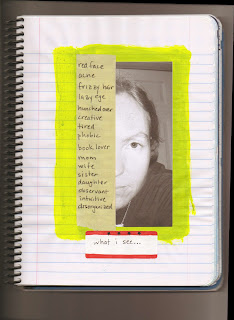 red face
acne
frizzy hair
lazy eye
hunched over
creative
tired
phobic
book lover
mom
wife
sister
daughter
observant
intuitive
disorganized
what i see...